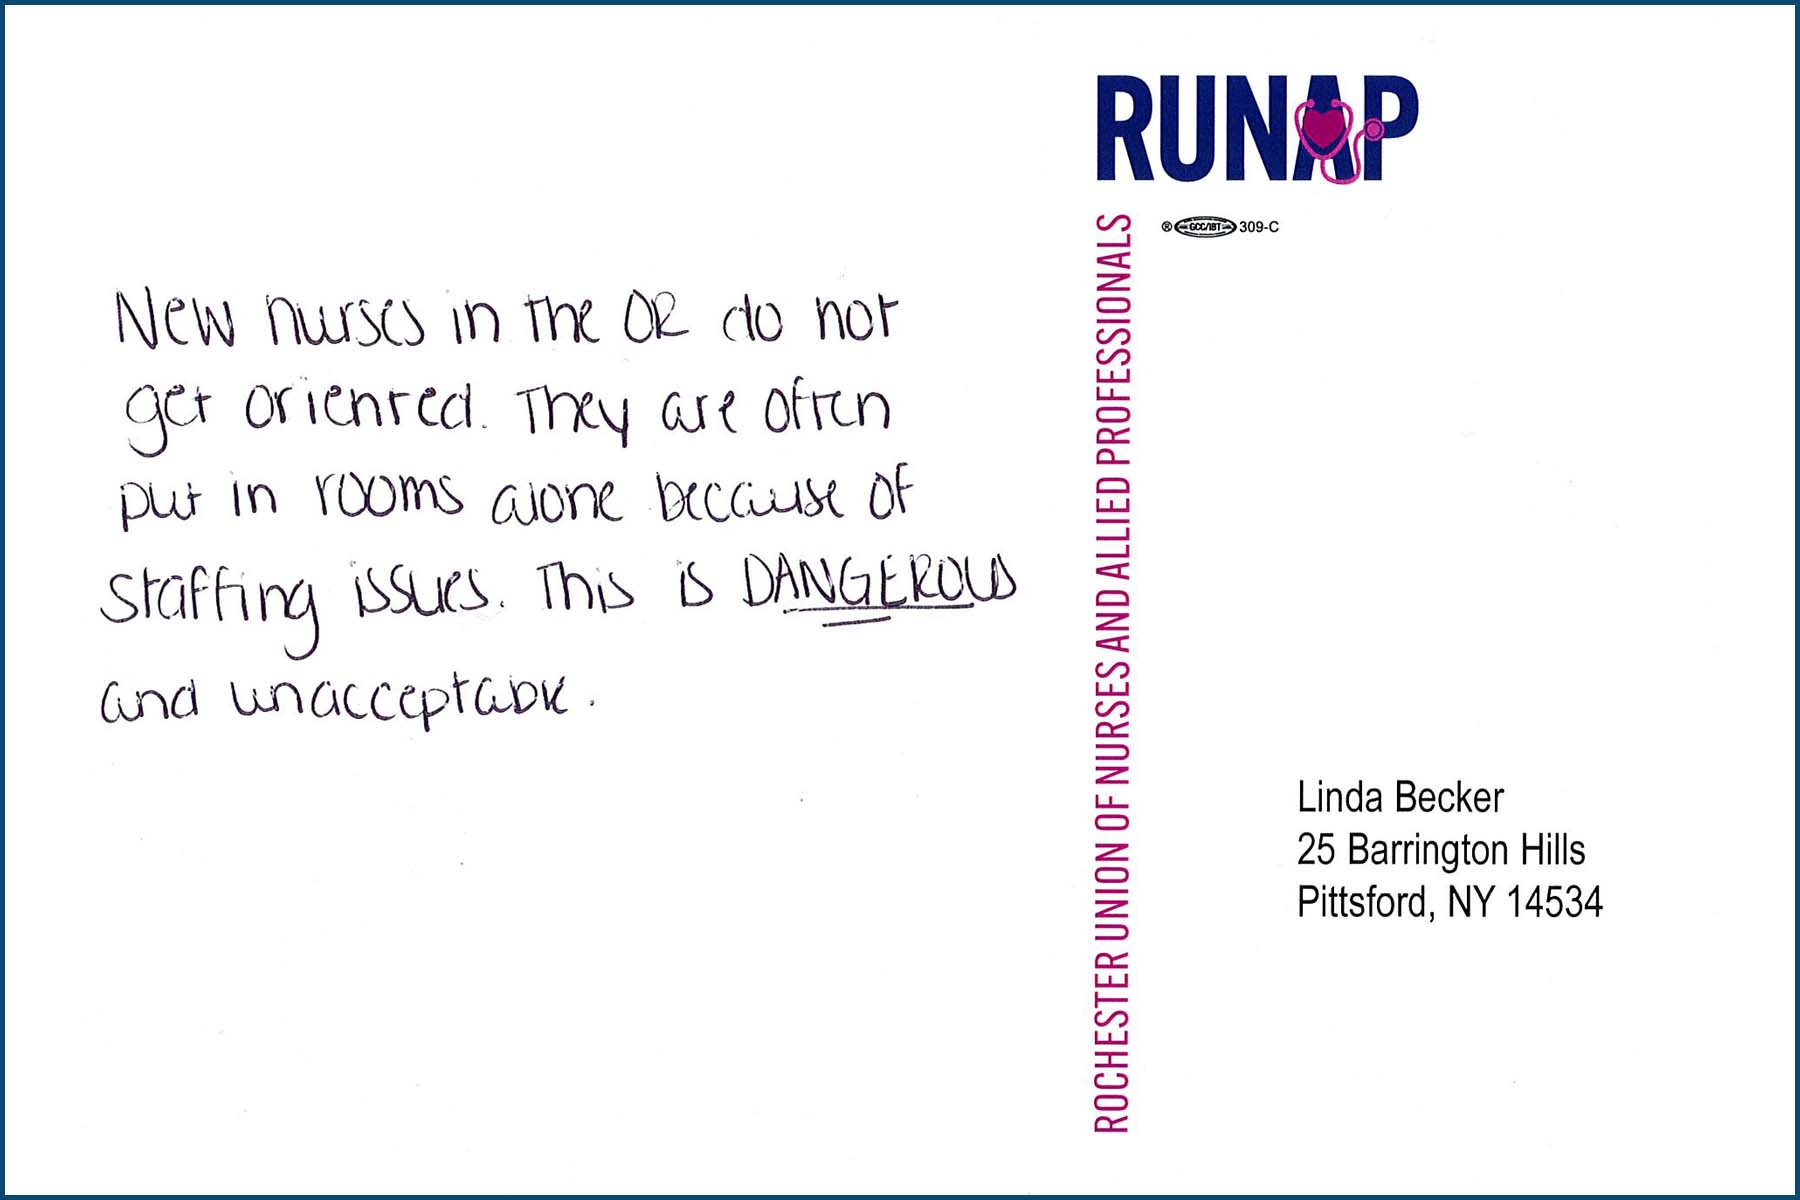 New nurses in the OR do not
get oriented. They are often
put in rooms alone because of
staffing issues. This is DANGEROUS
and unacceptable.
RUNAP
® GCC/IBT 309-C
ROCHESTER UNION OF NURSES AND ALLIED PROFESSIONALS
Linda Becker
25 Barrington Hills
Pittsford, NY 14534